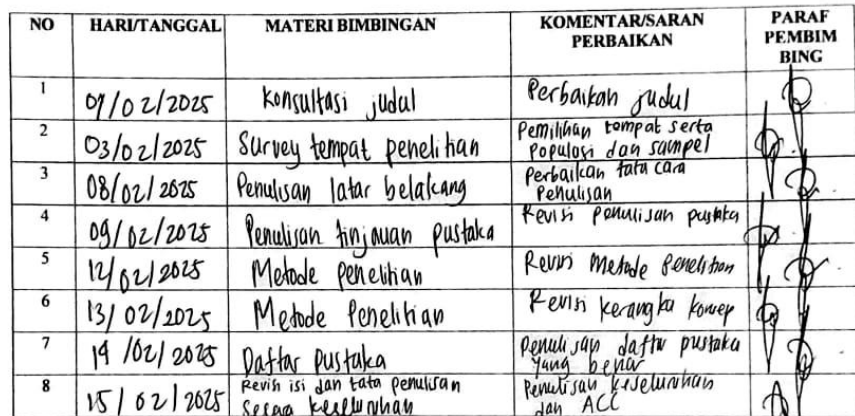 NO HARI/TANGGAL MATERI BIMBINGAN KOMENTAR/SARAN PERBAIKAN PARAF PEMBIM BING
1 01/02/2025 Konsultasi judul Perbaikan judul
2 03/02/2025 Survey tempat penelitian Pemilihan tempat serta populasi dan sampel
3 08/02/2025 Penulisan latar belakang Perbaikan tata cara Penulisan
4 09/02/2025 Penulisan tinjauan pustaka Revisi penulisan pustaka
5 12/02/2025 Metode penelitian Revisi Metode penelitian
6 13/02/2025 Metode Penelitian Revisi kerangka konsep
7 14/02/2025 Daftar Pustaka Penulisan daftar pustaka yang benar
8 15/02/2025 Revisi isi dan tata penulisan Secara keseluruhan Penulisan keseluruhan dan ACC